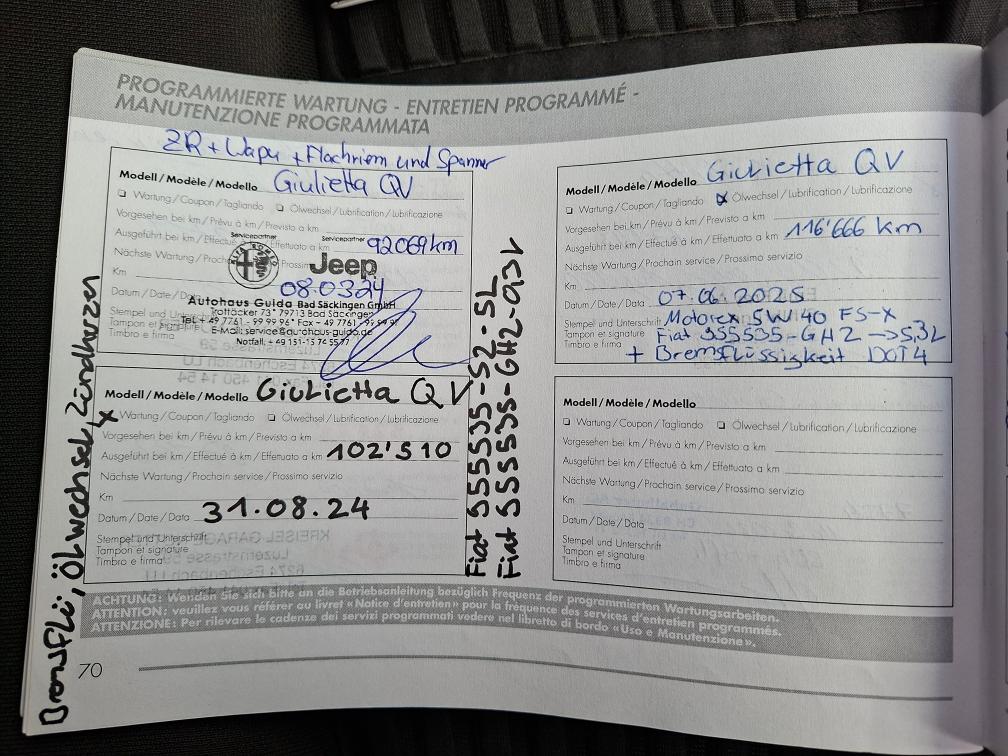 PROGRAMMIERTE WARTUNG - ENTRETIEN PROGRAMMÉ -
MANUTENZIONE PROGRAMMATA
ZR + Wapu + Flachriem und Spanner
Modell / Modèle / Modello Giulietta QV
Wartung / Coupon / Tagliando Ölwechsel / Lubrification / Lubrificazione
Vorgesehen bei km / Prévu à km / Previsto a km
Ausgeführt bei km / Effectué à km / Effettuato a km 92069 km
Nächste Wartung / Prochain
Km
Datum / Date / Data 08.03.24
Stempel und Unterschrift
Tampon et signature
Timbro e firma
Servicepartner
ALFA ROMEO
Servicepartner
Jeep
Autohaus Guida Bad Säckingen GmbH
Trottäcker 73 * 79713 Bad Säckingen
Tel. + 49 7761 - 99 99 96 * Fax - 49 7761 - 99 99 97
E-Mail: service@autohaus-guida.de
Notfall: + 49 151-15 74 55 77
Modell / Modèle / Modello Giulietta QV
Wartung / Coupon / Tagliando Ölwechsel / Lubrification / Lubrificazione
Vorgesehen bei km / Prévu à km / Previsto a km
Ausgeführt bei km / Effectué à km / Effettuato a km 102'510
Nächste Wartung / Prochain service / Prossimo servizio
Km
Datum / Date / Data 31.08.24
Stempel und Unterschrift
Tampon et signature
Timbro e firma
Bremsflü, Ölwechsel, Zündkerzen
Fiat 555535-S2-5L
Fiat 555535-GH2-
Modell / Modèle / Modello Giulietta QV
Wartung / Coupon / Tagliando Ölwechsel / Lubrification / Lubrificazione
Vorgesehen bei km / Prévu à km / Previsto a km
Ausgeführt bei km / Effectué à km / Effettuato a km 116'666 km
Nächste Wartung / Prochain service / Prossimo servizio
Km
Datum / Date / Data 07.06.2025
Stempel und Unterschrift Motorex 5W40 FS-X
Tampon et signature Fiat 955535-GH2 → 5,3L
Timbro e firma + Bremsflüssigkeit DOT4
Modell / Modèle / Modello
Wartung / Coupon / Tagliando Ölwechsel / Lubrification / Lubrificazione
Vorgesehen bei km / Prévu à km / Previsto a km
Ausgeführt bei km / Effectué à km / Effettuato a km
Nächste Wartung / Prochain service / Prossimo servizio
Km
Datum / Date / Data
Stempel und Unterschrift
Tampon et signature
Timbro e firma
ACHTUNG: Wenden Sie sich bitte an die Betriebsanleitung bezüglich Frequenz der programmierten Wartungsarbeiten.
ATTENTION: veuillez vous référer au livret «Notice d'entretien» pour la fréquence des services d'entretien programmés.
ATTENZIONE: Per rilevare le cadenze dei servizi programmati vedere nel libretto di bordo «Uso e Manutenzione».
70